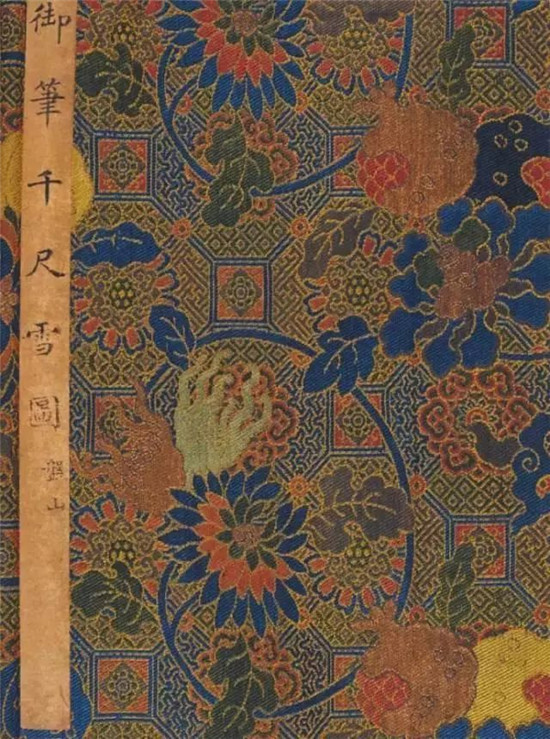 御筆千尺雪圖 盤山